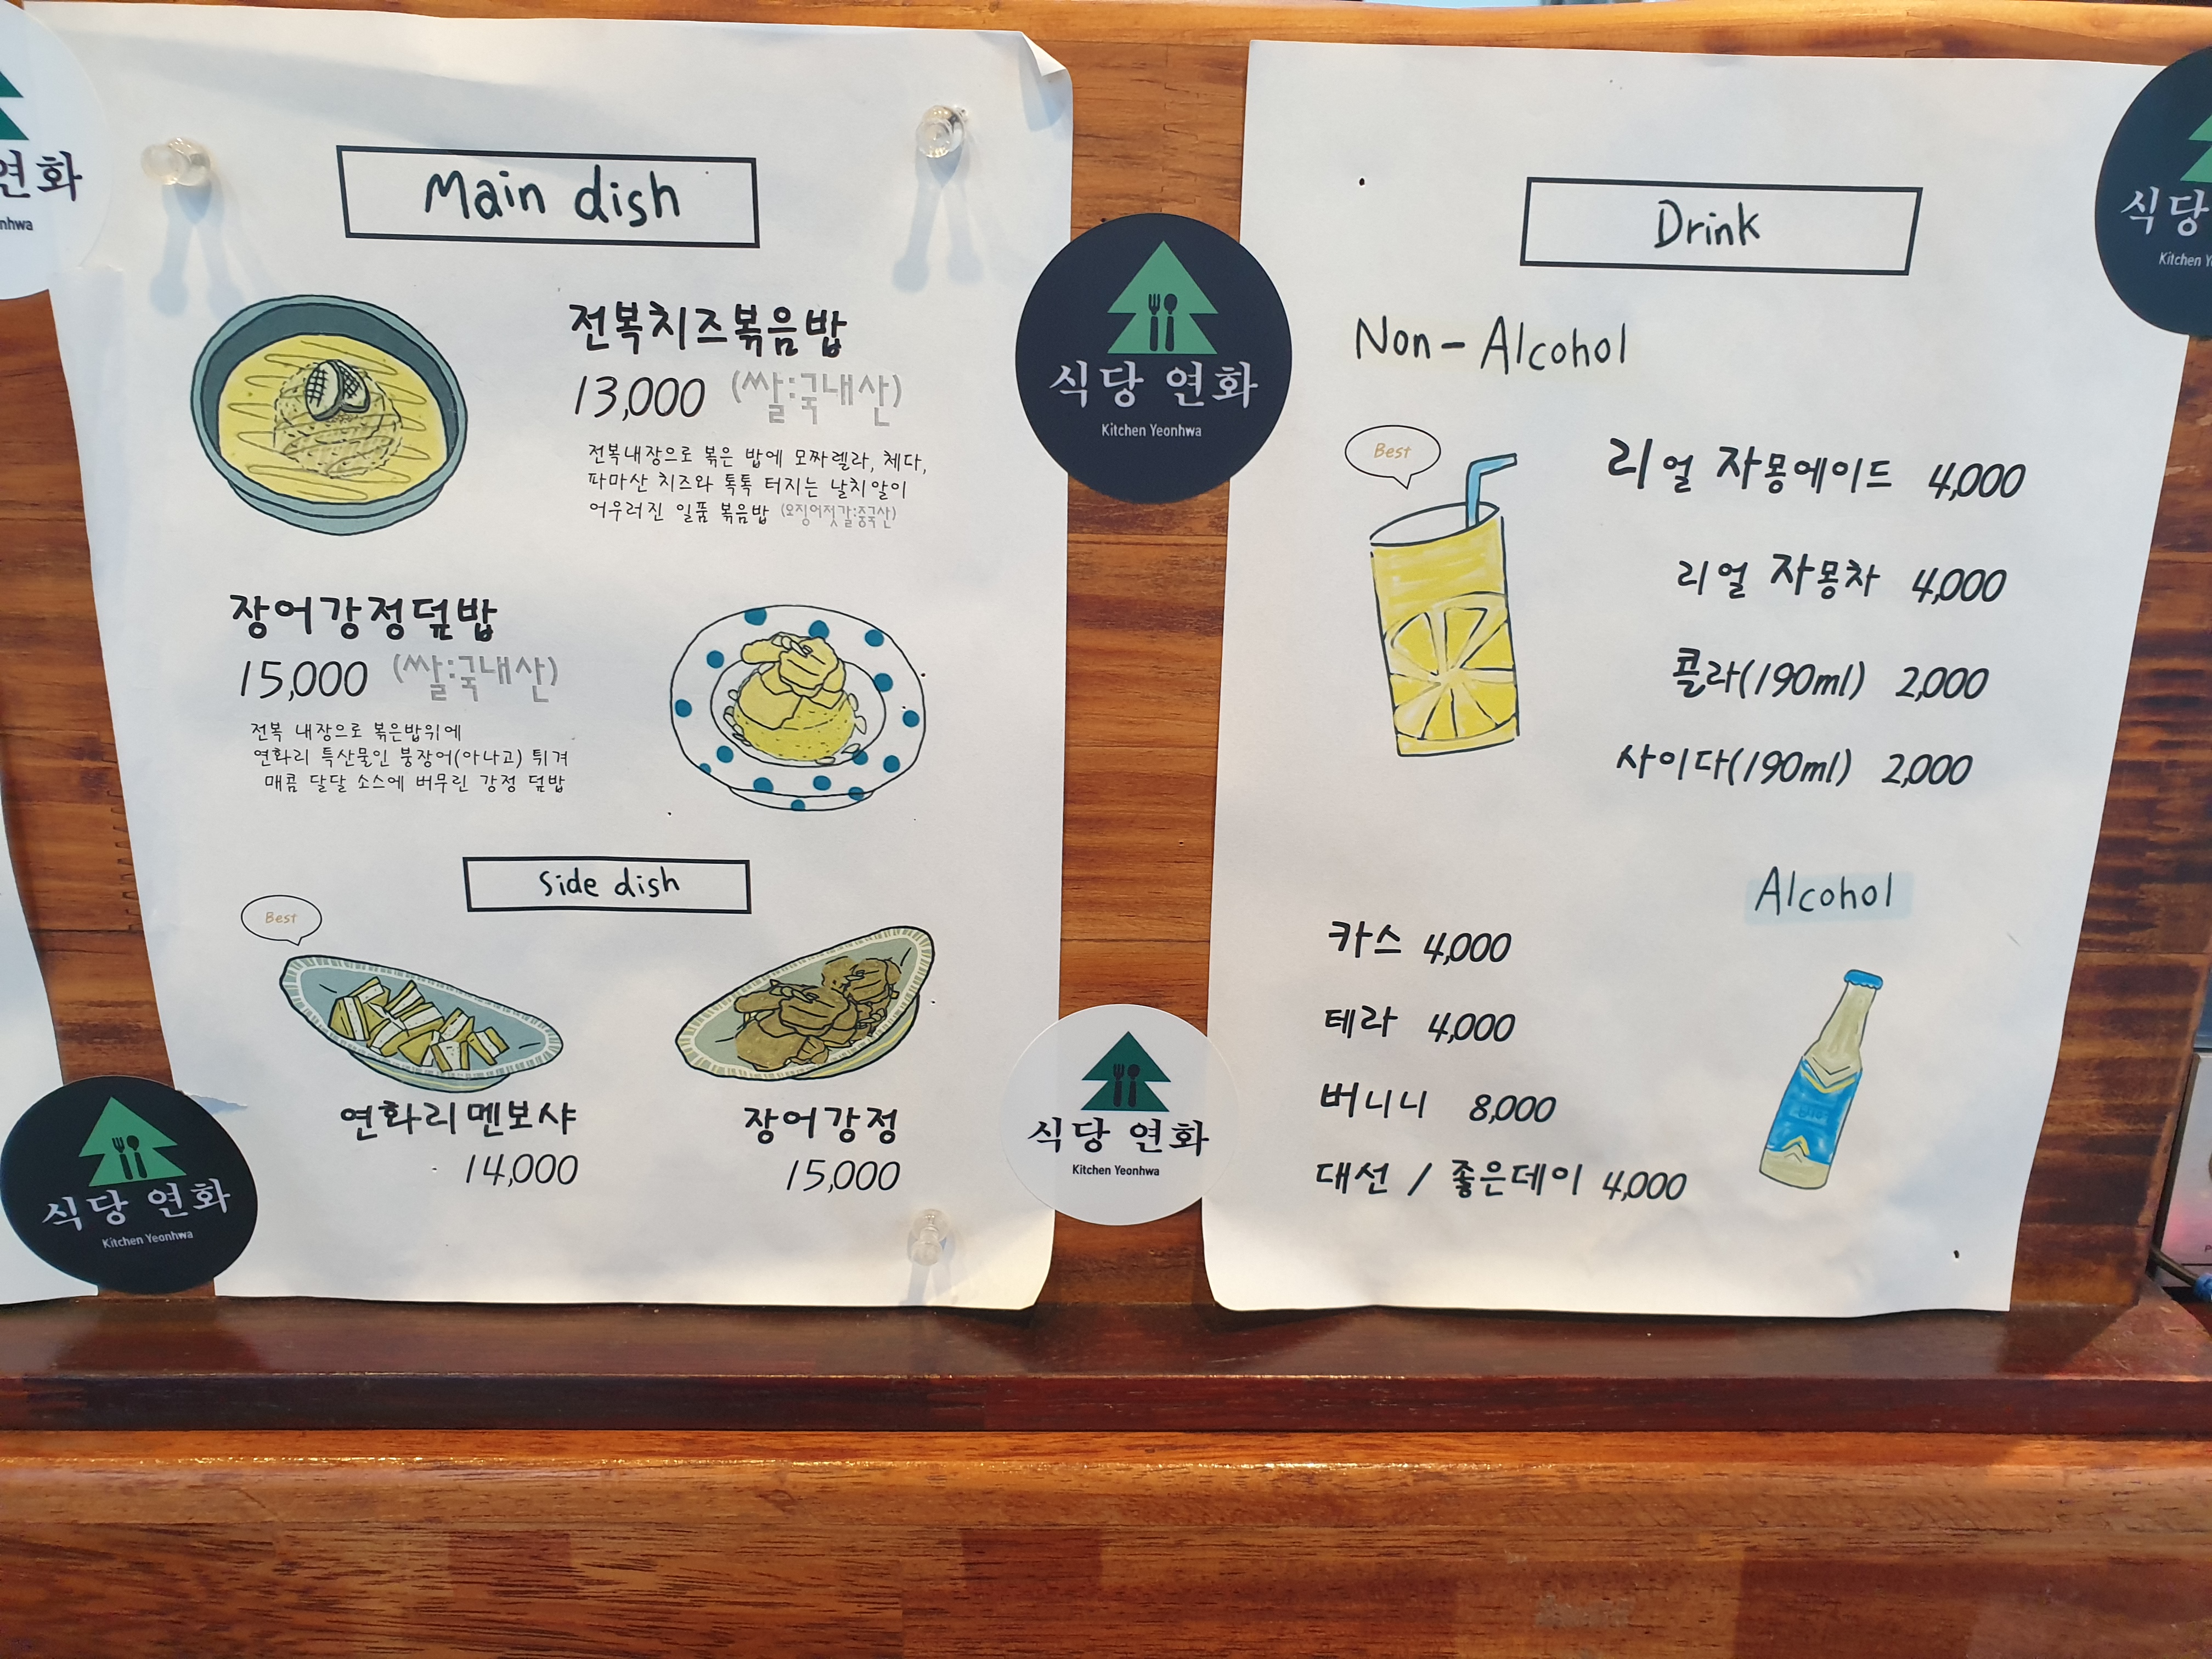 Main dish
전복치즈볶음밥
13,000 (쌀:국내산)
전복내장으로 볶은 밥에 모짜렐라, 체다,
파마산 치즈와 톡톡 터지는 날치알이
어우러진 일품 볶음밥 (오징어젓갈:중국산)
장어강정덮밥
15,000 (쌀:국내산)
전복 내장으로 볶은밥위에
연화리 특산물인 붕장어(아나고) 튀겨
매콤 달달 소스에 버무린 강정 덮밥
Side dish
Best
연화리멘보샤
14,000
장어강정
15,000
Drink
Non-Alcohol
Best
리얼 자몽에이드 4,000
리얼 자몽차 4,000
콜라(190ml) 2,000
사이다(190ml) 2,000
Alcohol
카스 4,000
테라 4,000
버니니 8,000
대선 / 좋은데이 4,000
식당 연화
Kitchen Yeonhwa
식당 연화
Kitchen Yeonhwa
식당 연화
Kitchen Yeonhwa
연화
nhwa
식당
Kitchen Y